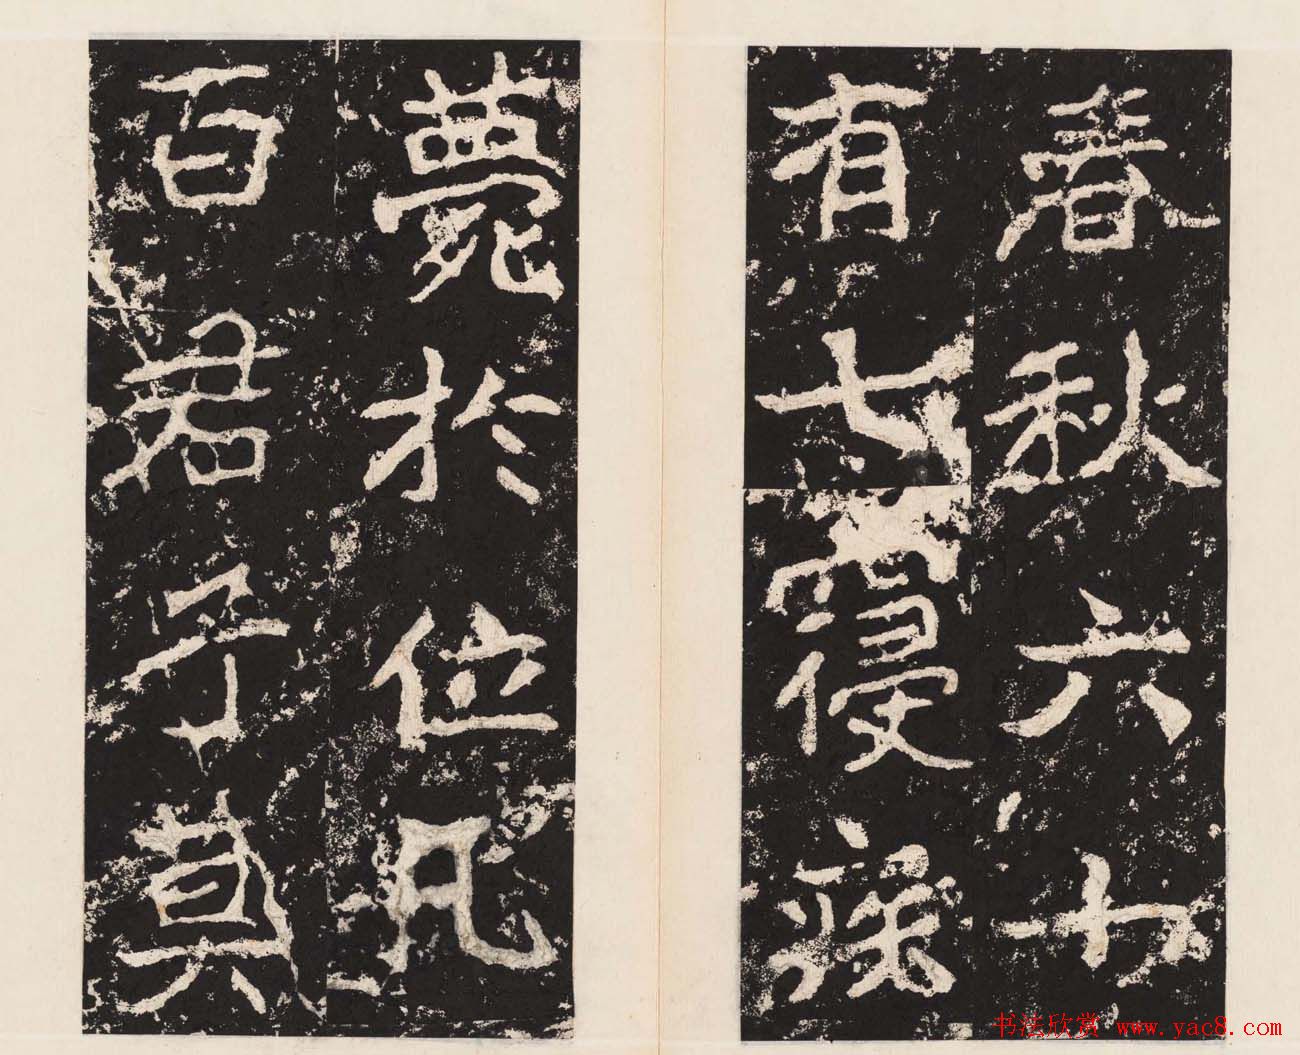 春秋六十
有七寑疾
薨於位凡
百君子莫
书法欣赏 www.yac8.com